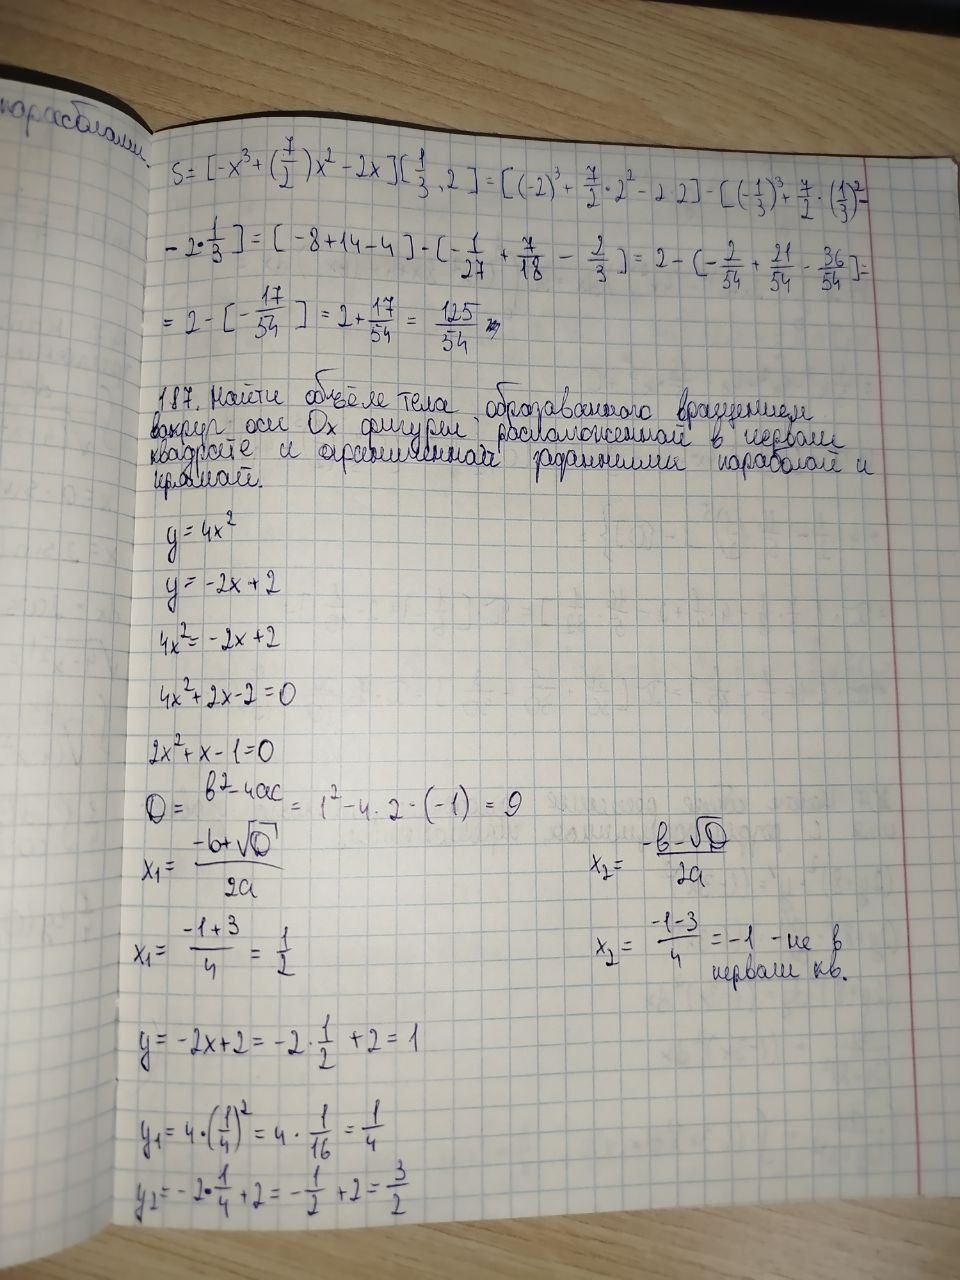 параболами.
S = [-x³ + (7/2)x² - 2x][1/3, 2] = [(-2)³ + 7/2 · 2² - 2·2] - [(-1/3)³ + 7/2 · (1/3)² -
- 2 · 1/3] = [-8 + 14 - 4] - [-1/27 + 7/18 - 2/3] = 2 - [-2/54 + 21/54 - 36/54] =
= 2 - [-17/54] = 2 + 17/54 = 125/54
187. Найти объём тела образаванного вращением
вокруг оси Ox фигуры, расположенной в первом
квадрате и ограниченной заданными параболой и
прямой.
y = 4x²
y = -2x + 2
4x² = -2x + 2
4x² + 2x - 2 = 0
2x² + x - 1 = 0
D = b² - 4ac = 1² - 4 · 2 · (-1) = 9
x₁ = (-b + √D)/2a x₂ = (-b - √D)/2a
x₁ = (-1 + 3)/4 = 1/2 x₂ = (-1 - 3)/4 = -1 - не в
первом кв.
y = -2x + 2 = -2 · 1/2 + 2 = 1
y₁ = 4 · (1/4)² = 4 · 1/16 = 1/4
y₂ = -2 · 1/4 + 2 = -1/2 + 2 = 3/2